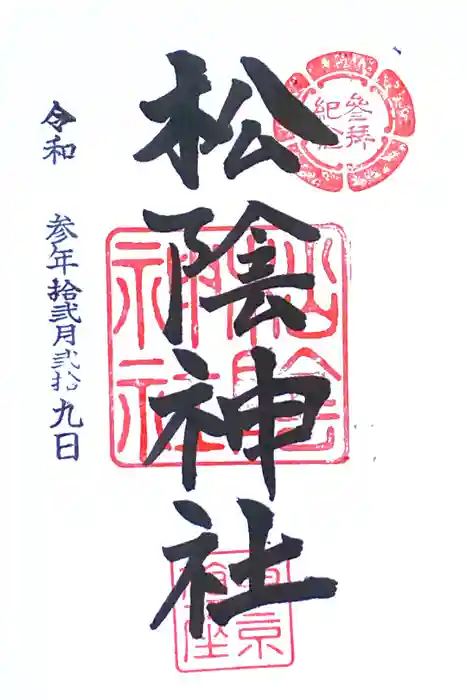 参拝
紀念
松陰神社
松陰
神社
東京
鎮座
令和 参年拾弐月弐拾九日